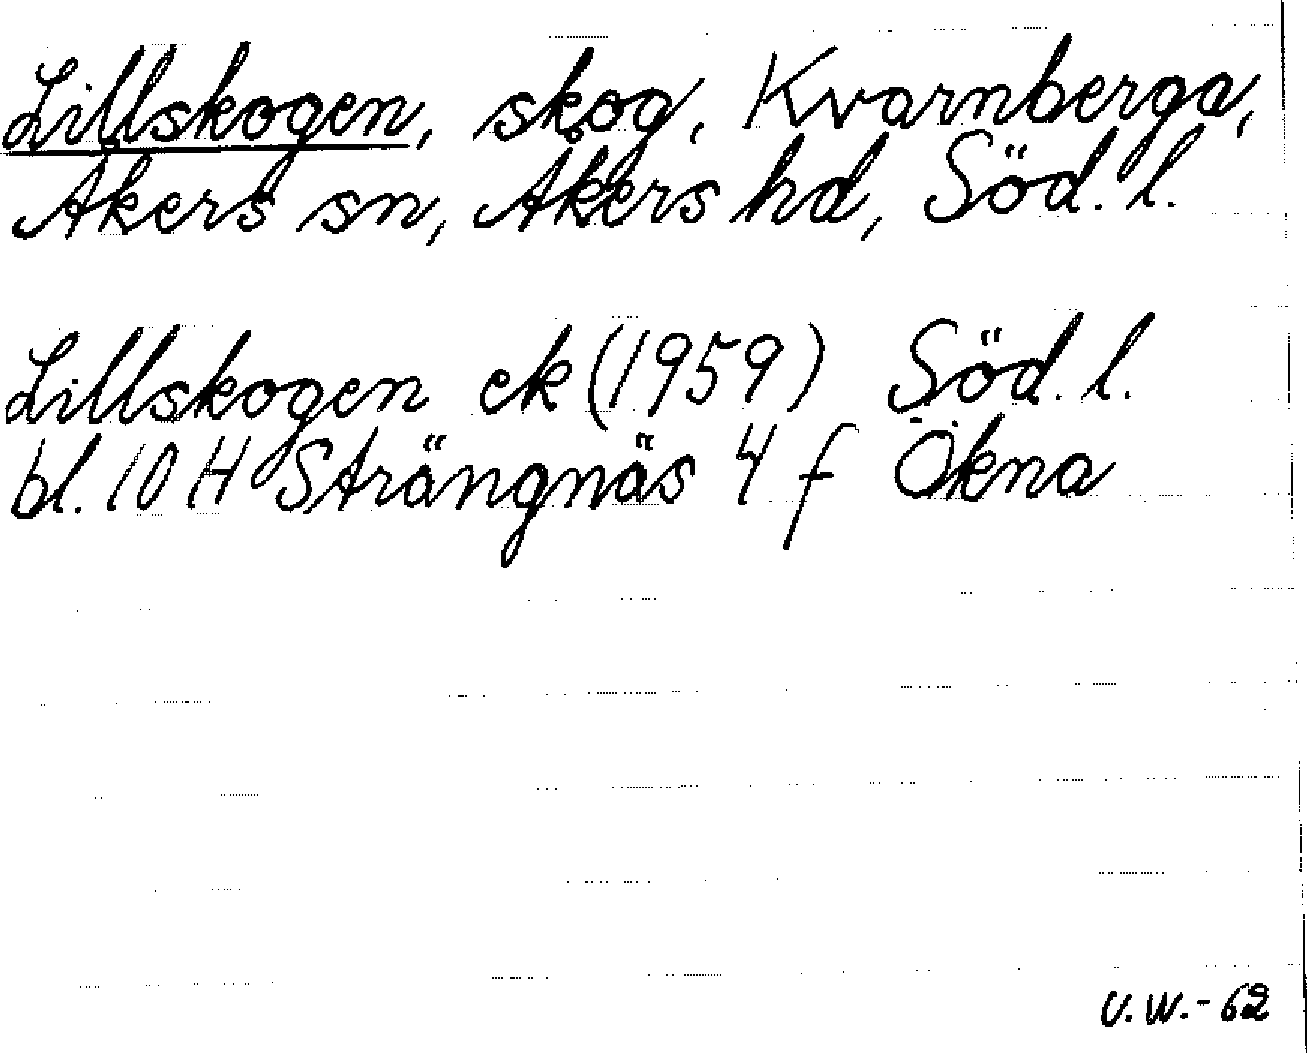 Lillskogen, skog, Kvarnberga,
Åkers sn, Åkers hd, Söd. l.
Lillskogen ek (1959) Söd. l.
bl. 10 H Strängnäs 4 f Ökna
U. W. - 62